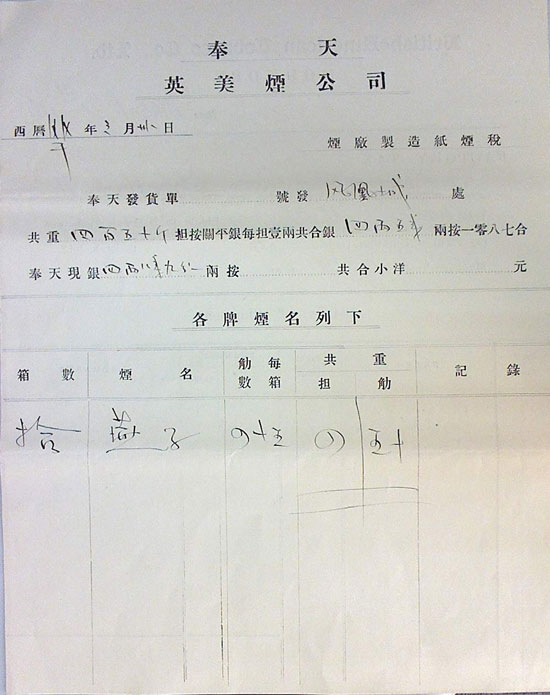 奉天
英美煙公司
西曆 年 月 日
煙廠製造紙煙稅
奉天發貨單 號發鳳凰城處
共重四百五十斤担按關平銀每担壹兩共合銀四兩五錢兩按一零八七合
奉天現銀四兩八錢九分兩按 共合小洋 元
各牌煙名列下
箱數 煙名 每箱觔數 共重 担 觔 記錄
拾 燕子 四十五 四 五十